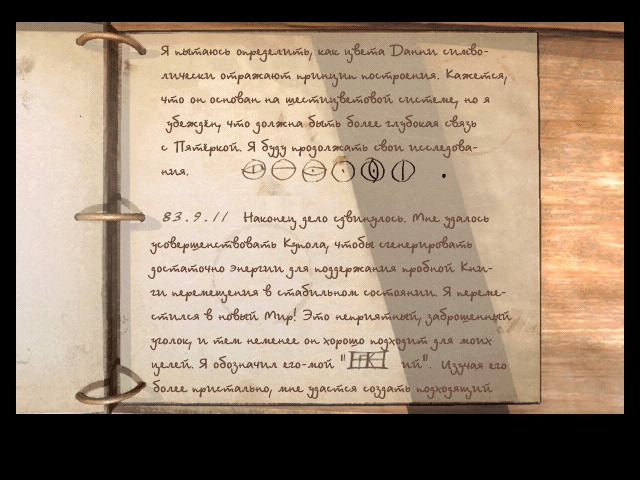 Я пытаюсь определить, как цвета Дании симво-
лически отражают принцип построения. Кажется,
что он основан на шестицветовой системе, но я
убеждён, что должна быть более глубокая связь
с Пятёркой. Я буду продолжать свои исследова-
ния.
83.9.11 Наконец дело сдвинулось. Мне удалось
усовершенствовать Купола, чтобы сгенерировать
достаточно энергии для поддержания пробной Кни-
ги перемещения в стабильном состоянии. Я переме-
стился в новый Мир! Это неприятный, заброшенный
уголок, и тем неменее он хорошо подходит для моих
целей. Я обозначил его-мой " ий". Изучая его
более пристально, мне удастся создать подходящий